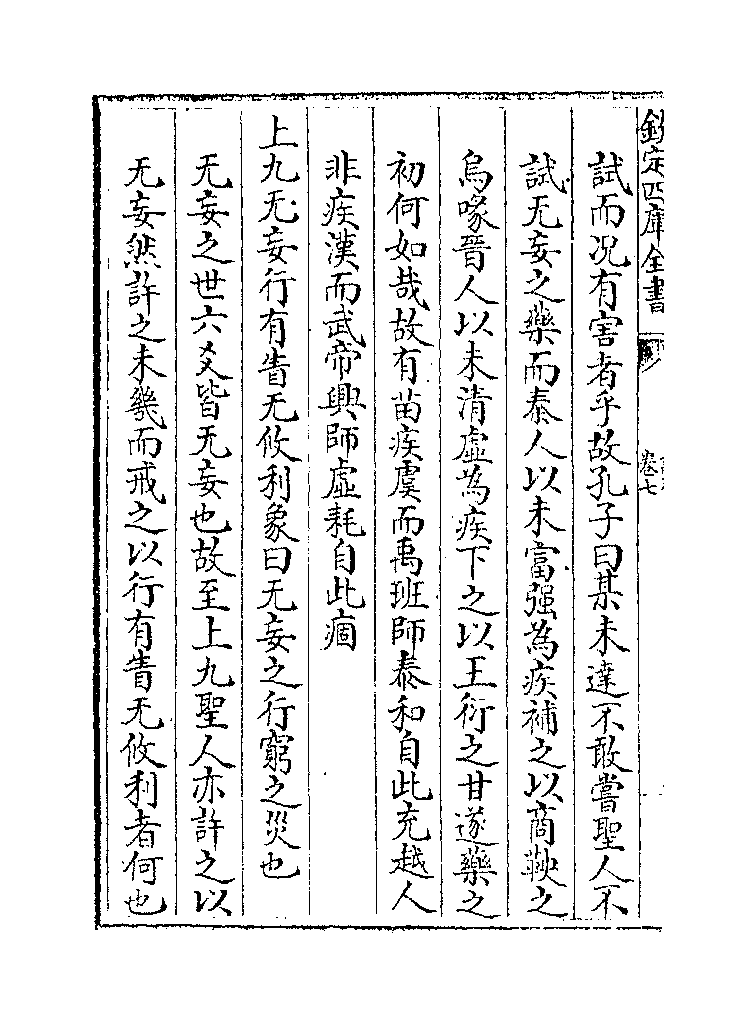 欽定四庫全書
卷七
試而况有害者乎故孔子曰某未達不敢嘗聖人不
試无妄之藥而秦人以未富强為疾補之以商鞅之
烏喙晉人以未清虛為疾下之以王衍之甘遂藥之
初何如哉故有苗疾虞而禹班師泰和自此充越人
非疾漢而武帝興師虛耗自此痼
上九无妄行有眚无攸利象曰无妄之行窮之災也
无妄之世六爻皆无妄也故至上九聖人亦許之以
无妄然許之未幾而戒之以行有眚无攸利者何也